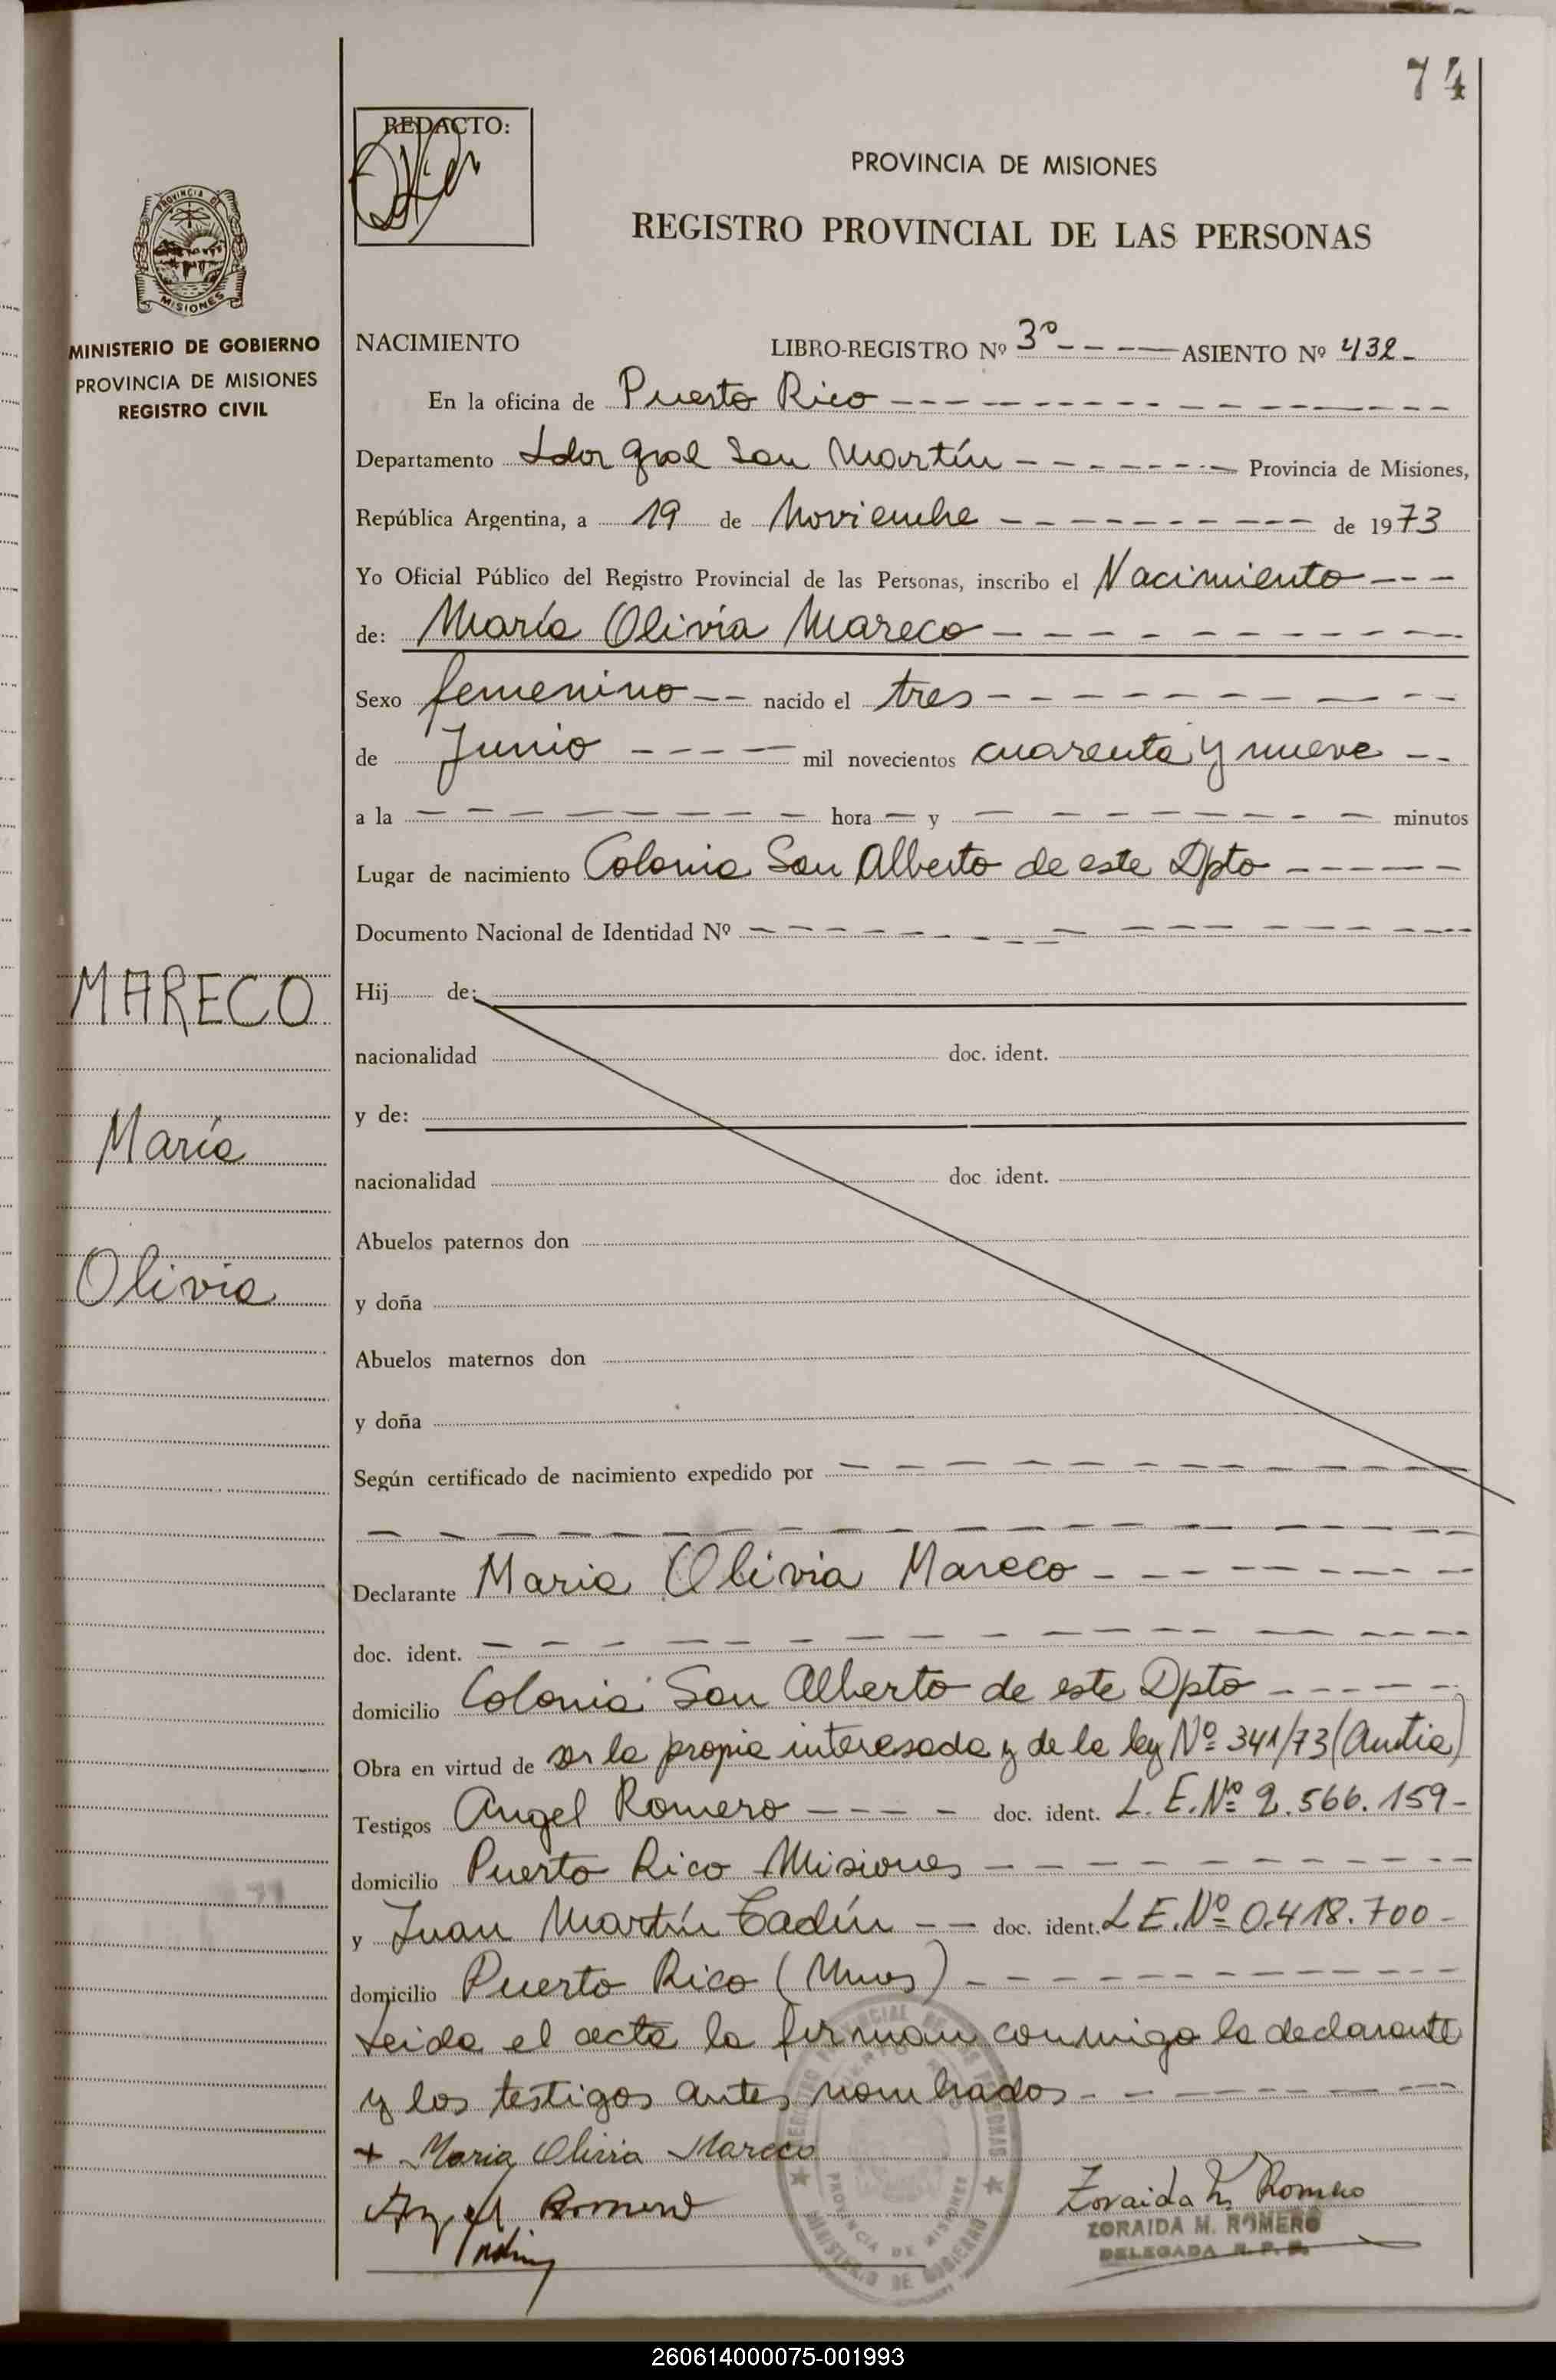 74
REDACTO:
PROVINCIA DE MISIONES
REGISTRO PROVINCIAL DE LAS PERSONAS
MISIONES
MINISTERIO DE GOBIERNO
PROVINCIA DE MISIONES
REGISTRO CIVIL
NACIMIENTO LIBRO-REGISTRO Nº 3º ASIENTO Nº 432
En la oficina de Puerto Rico
Departamento Ldor Gral San Martín Provincia de Misiones,
República Argentina, a 19 de Noviembre de 1973
Yo Oficial Público del Registro Provincial de las Personas, inscribo el Nacimiento
de: María Olivia Mareco
Sexo femenino nacido el tres
de Junio mil novecientos cuarenta y nueve
a la hora y minutos
Lugar de nacimiento Colonia San Alberto de este Dpto
Documento Nacional de Identidad Nº
MARECO
María
Olivia
Hij de:
nacionalidad doc. ident.
y de:
nacionalidad doc ident.
Abuelos paternos don
y doña
Abuelos maternos don
y doña
Según certificado de nacimiento expedido por
Declarante Maria Olivia Mareco
doc. ident.
domicilio Colonia San Alberto de este Dpto
Obra en virtud de ser la propia interesada y de la ley Nº 341/73
Testigos Angel Romero doc. ident. L.E.Nº 2.566.159
domicilio Puerto Rico Misiones
y Juan Martín doc. ident. L.E.Nº 0.418.700
domicilio Puerto Rico (Mnes)
Leida el acta la firman conmigo la declarante
y los testigos antes nombrados
+ Maria Olivia Mareco
Angel Romero
Zoraida M. Romero
ZORAIDA M. ROMERO
DELEGADA R. P. P.
PROVINCIA DE MISIONES
MINISTERIO DE GOBIERNO
260614000075-001993